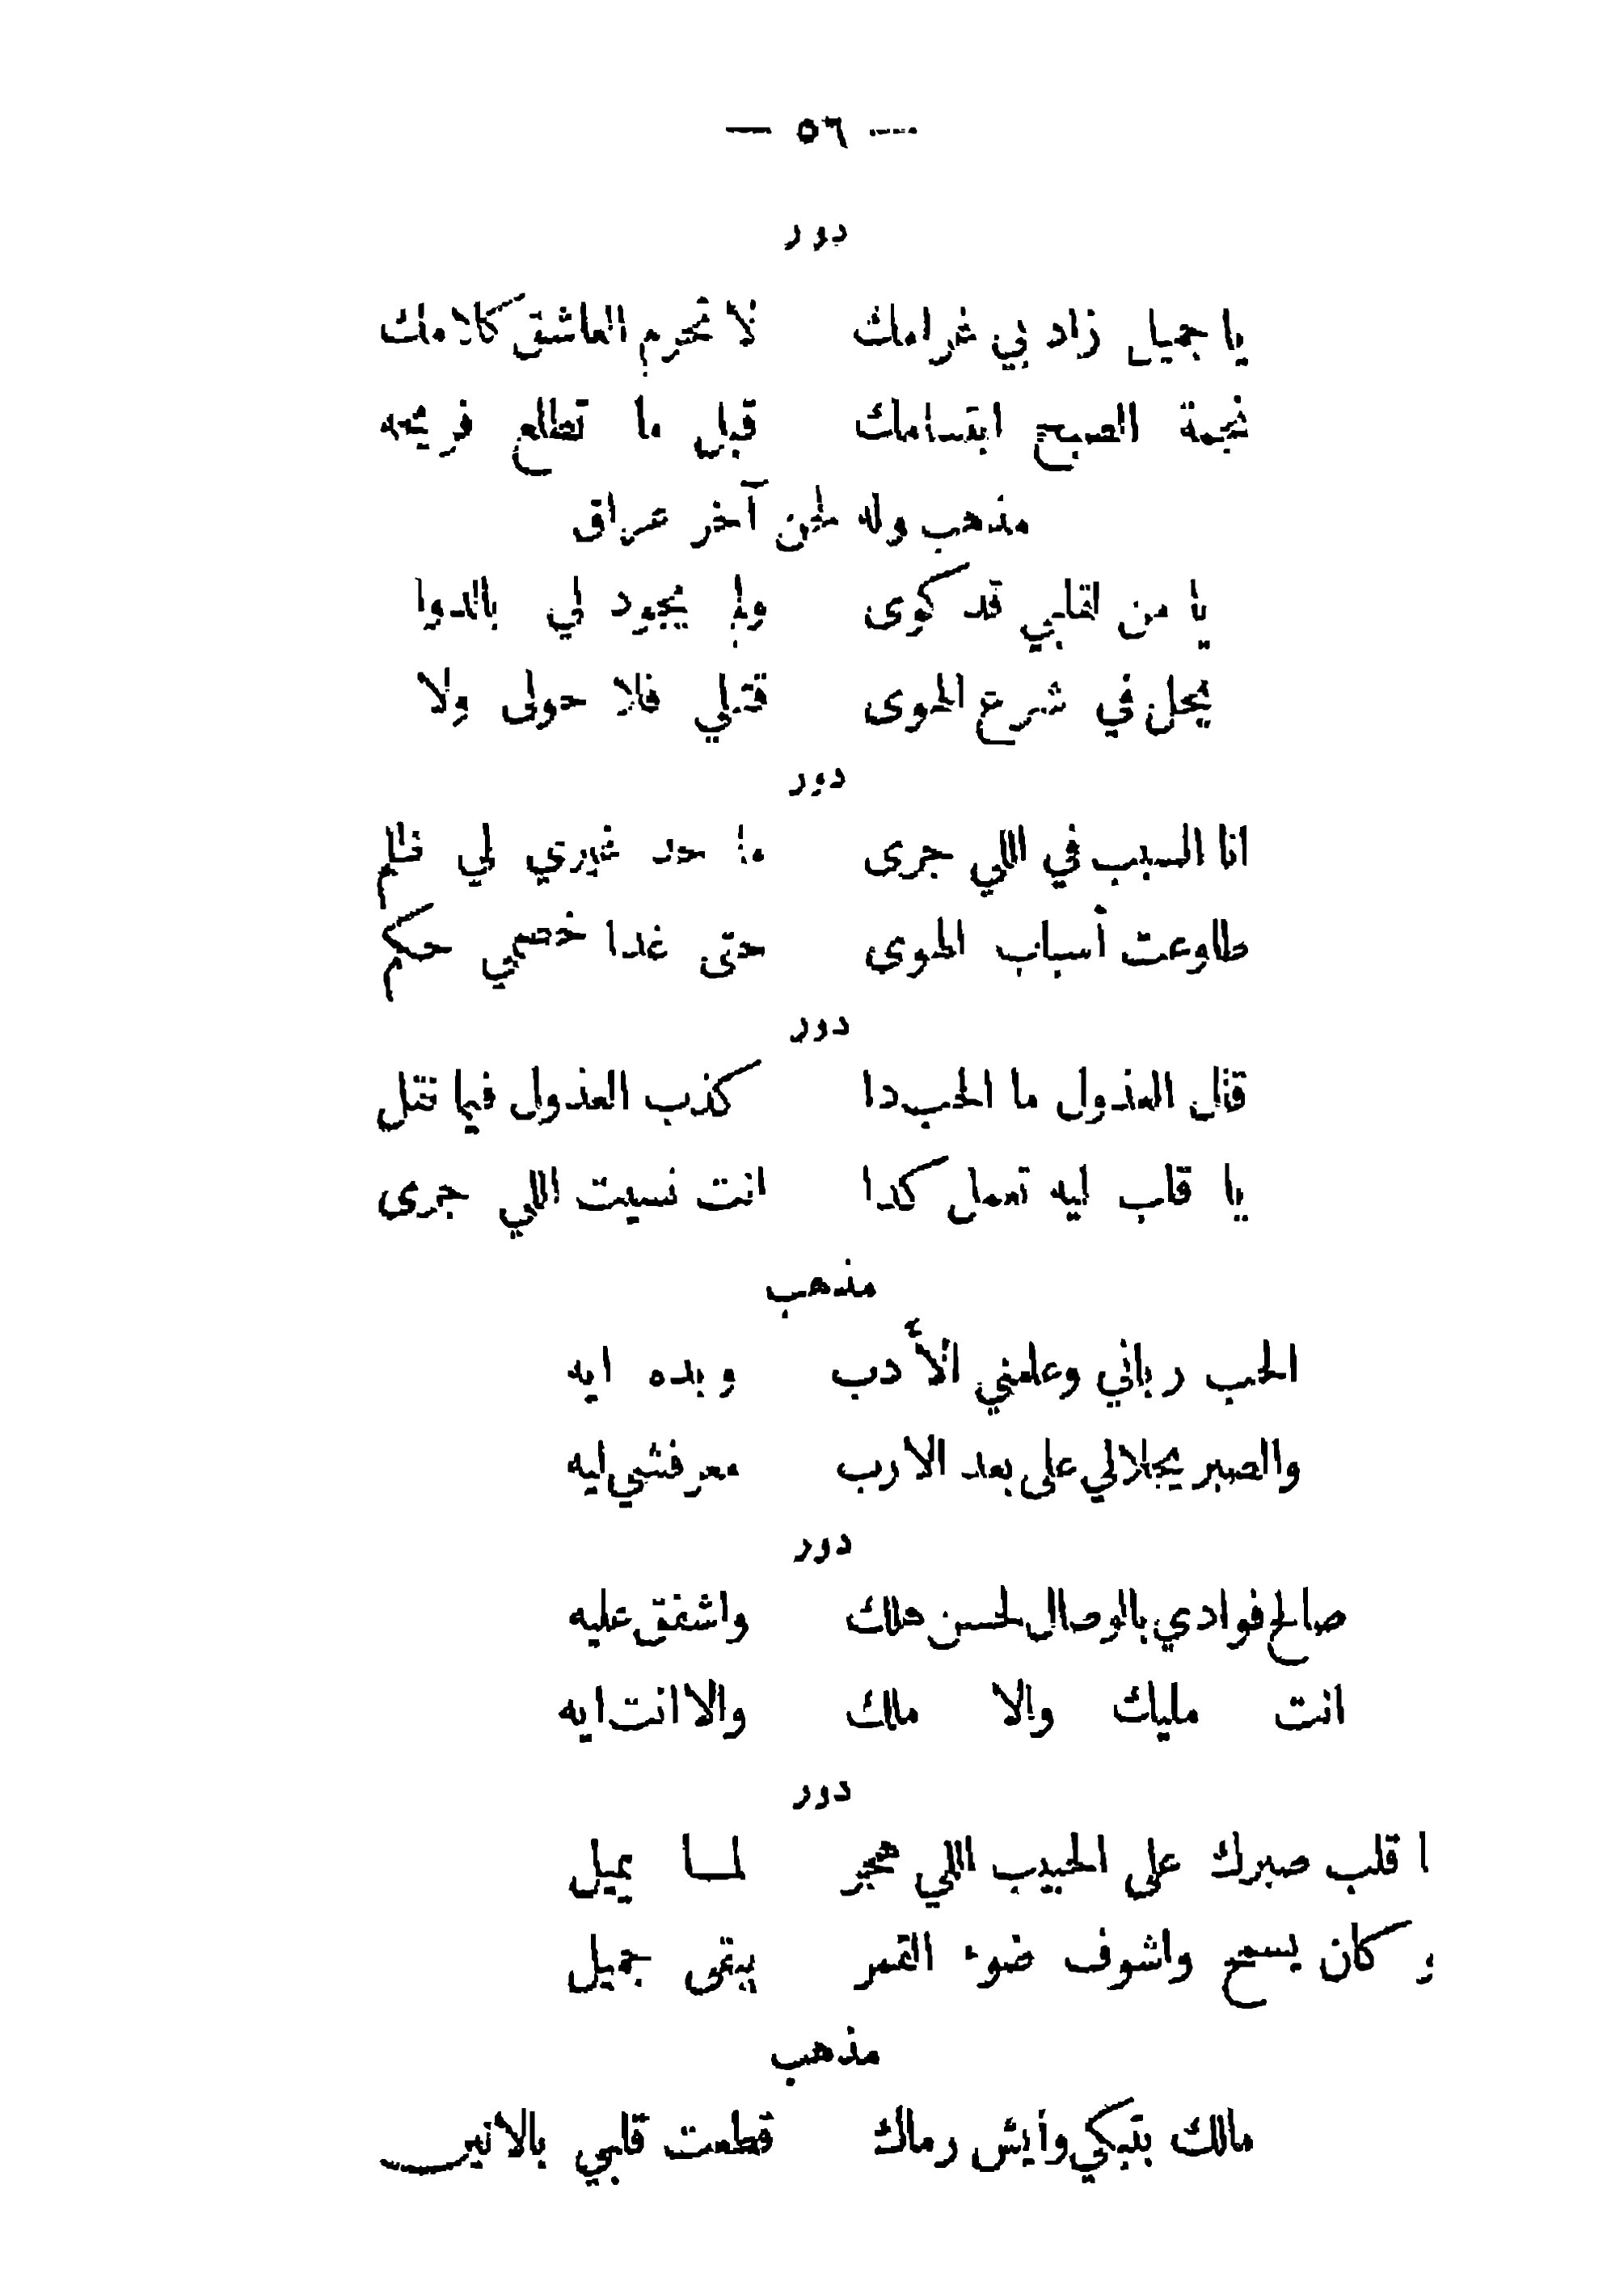 — ٥٦ —
دور
يا جميل زاد بي غرامك لا تحرم العاشق كلامك
نجمة الصبح ابتسامك قبل ما تطلع فريحه
مذهب وله لحن آخر عراق
يا من لقلبي قد كوى ولم يجود لي بالدوا
يحل في شرع الهوى قتلي فلا حولى ولا
دور
انا السبب في اللي جرى ما حد غيري لي ظلم
طاوعت أسباب الهوى حتى غدا خصمي حكم
دور
قال العذول ما الحب دا كذب العذول فيما نقل
يا قلب ليه تعمل كدا انت نسيت اللي جرى
مذهب
الحب رباني وعلمني الأدب وبده ايه
والصبر يحلالي على بعد الارب معرفشي ليه
دور
صالح فوادي بالوصال لحسن هلك واشفق عليه
انت مليك والا ملك والا انت ايه
دور
ا قلب صبرك على الحبيب اللي هجر لما يميل
و كان يسمح واشوف ضوء القمر يبقى جميل
مذهب
مالك بتبكي وأيش رماك قطعت قلبي بالانين